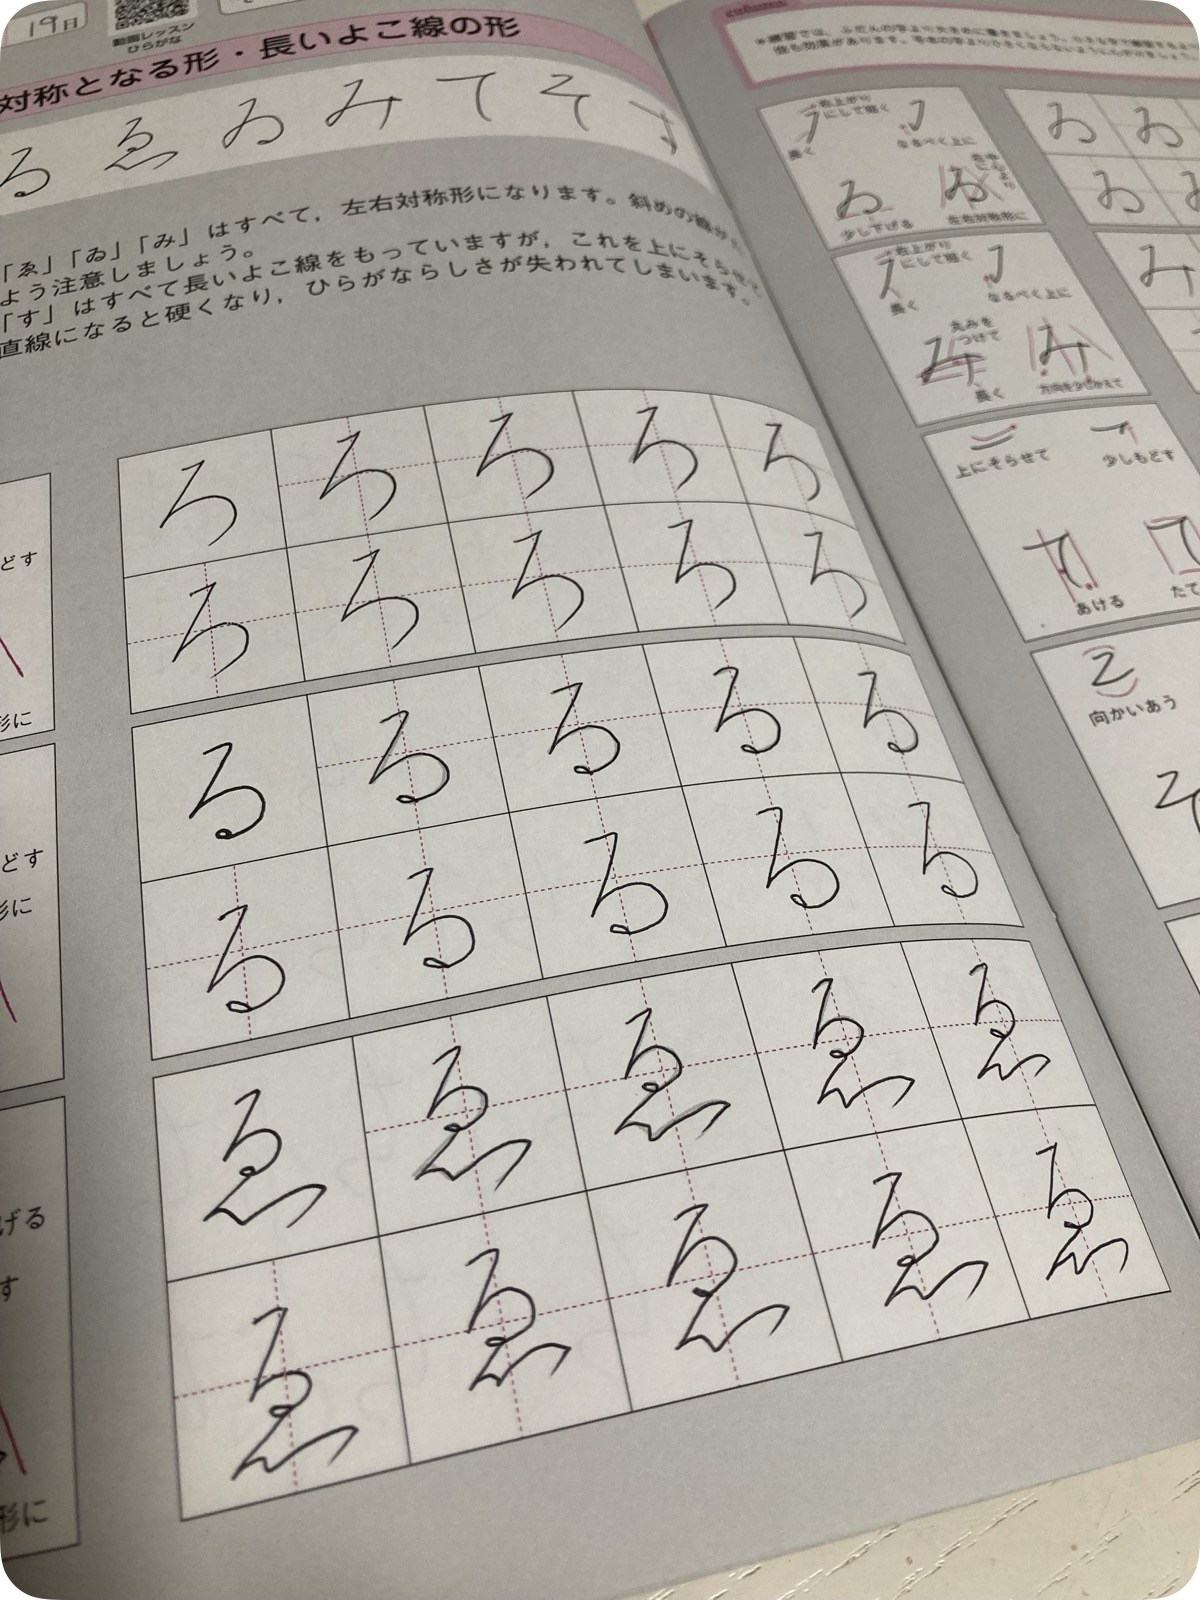 19日
動画レッスン
ひらがな
対称となる形・長いよこ線の形
る ゑ ゐ み て そ す
「ゑ」「ゐ」「み」はすべて，左右対称形になります。斜めの線が
よう注意しましょう。
「す」はすべて長いよこ線をもっていますが，これを上にそらせて
直線になると硬くなり，ひらがならしさが失われてしまいます。
どす
形に
どす
形に
げる
す
形に
ろ ろ ろ ろ ろ
ろ ろ ろ ろ ろ
る る る る る
る る る る る
ゑ ゑ ゑ ゑ ゑ
ゑ ゑ ゑ ゑ ゑ
column
右上がり
にして短く
長く
なるべく上に
少し下げる
左右対称形に
ゐ ゐ
ゐ ゐ
右上がり
にして短く
長く
なるべく上に
丸みを
つけて
長く
方向を少しかえて
み
上にそらせて
少しもどす
て
あける
たて
向かいあう
そ